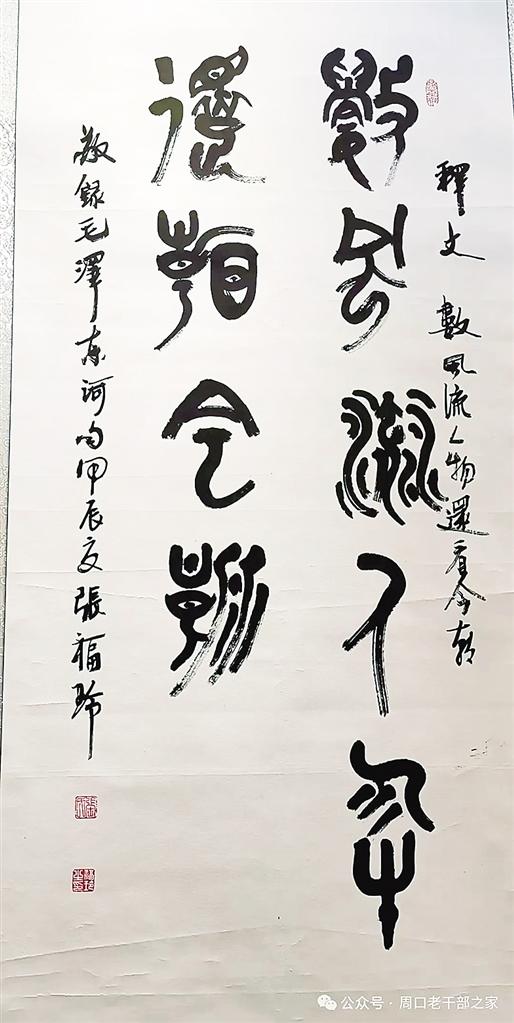 釋文 數風流人物還看今朝
數風流人物
還看今朝
敬錄毛澤东词句甲辰夏張福玲
公众号·周口老干部之家